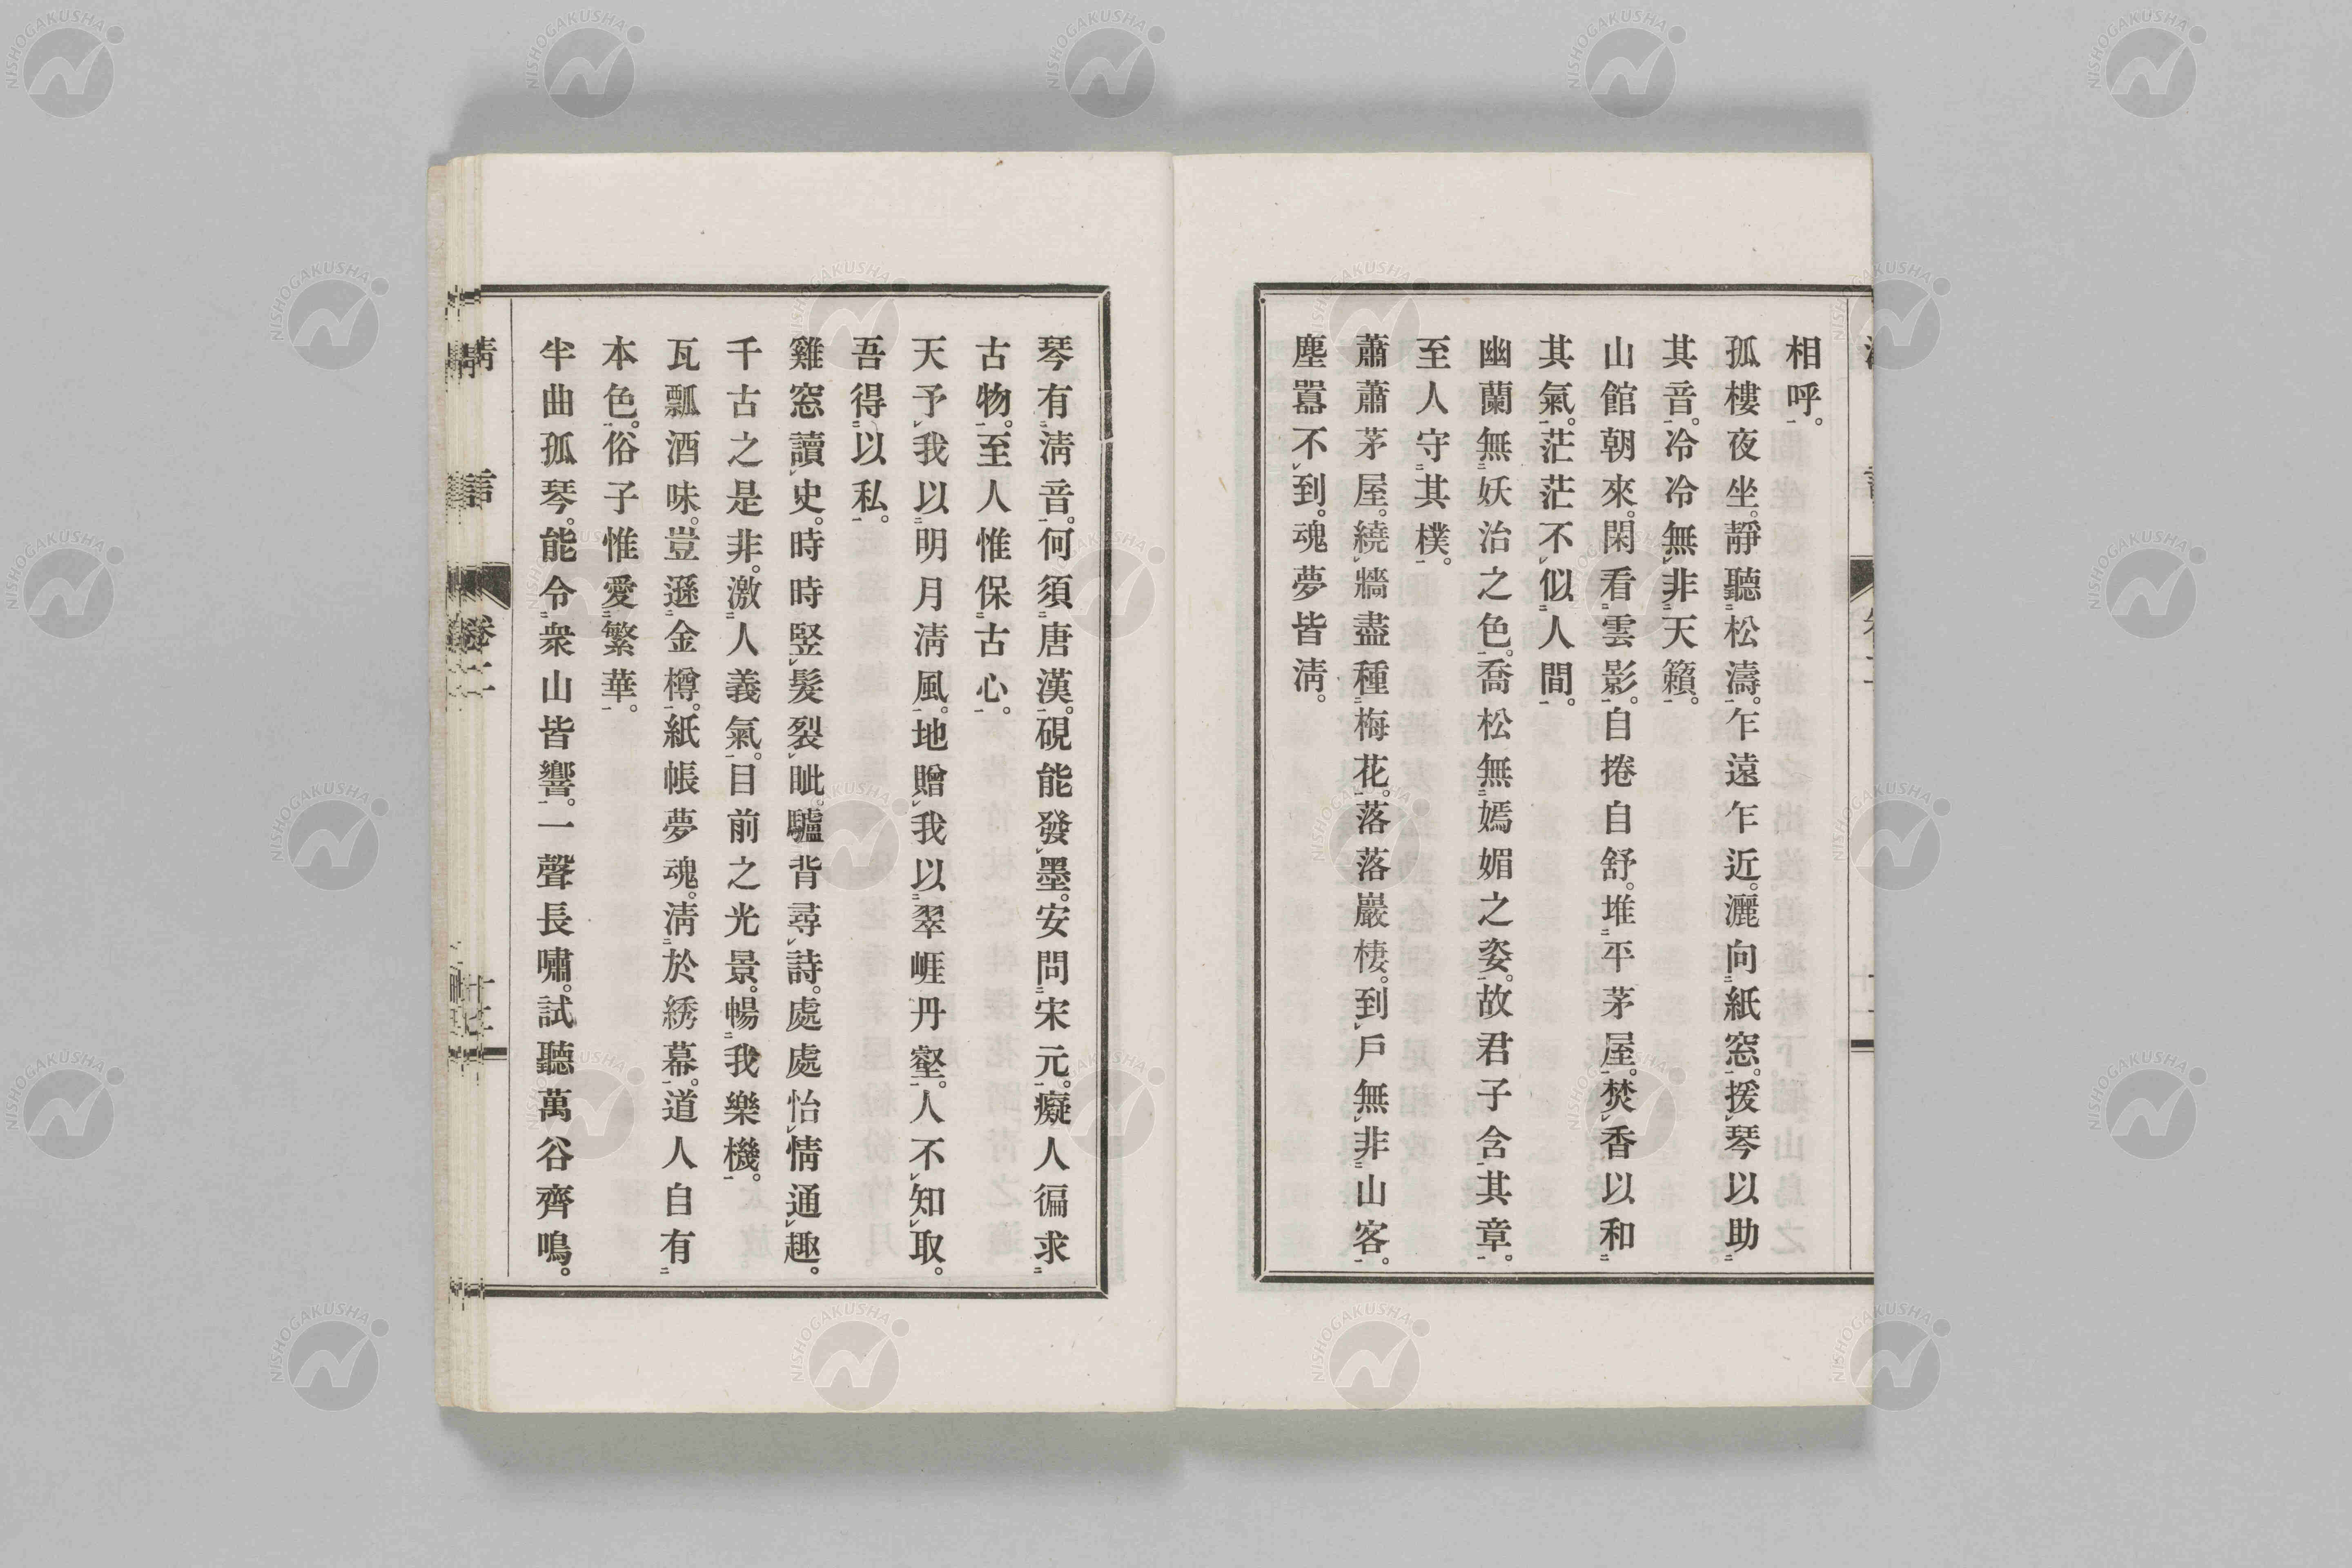 相呼。
孤樓夜坐。靜聽松濤。乍遠乍近。灑向紙窓。援琴以助
其音。冷冷無非天籟。
山館朝來。閑看雲影。自捲自舒。堆平茅屋。焚香以和
其氣。茫茫不似人間。
幽蘭無妖治之色。喬松無嫣媚之姿。故君子含其章。
至人守其樸。
蕭蕭茅屋。繞牆盡種梅花。落落巖棲。到戶無非山客。
塵囂不到。魂夢皆淸。
琴有淸音。何須唐漢。硯能發墨。安問宋元。癡人徧求
古物。至人惟保古心。
天予我以明月淸風。地贈我以翠崕丹壑。人不知取。
吾得以私。
雞窓讀史。時時竪髮裂眦。驢背尋詩。處處怡情通趣。
千古之是非。激人義氣。目前之光景。暢我樂機。
瓦瓢酒味。豈遜金樽。紙帳夢魂。淸於綉幕。道人自有
本色。俗子惟愛繁華。
半曲孤琴。能令衆山皆響。一聲長嘯。試聽萬谷齊鳴。
淸言 卷二
NISHOGAKUSHA